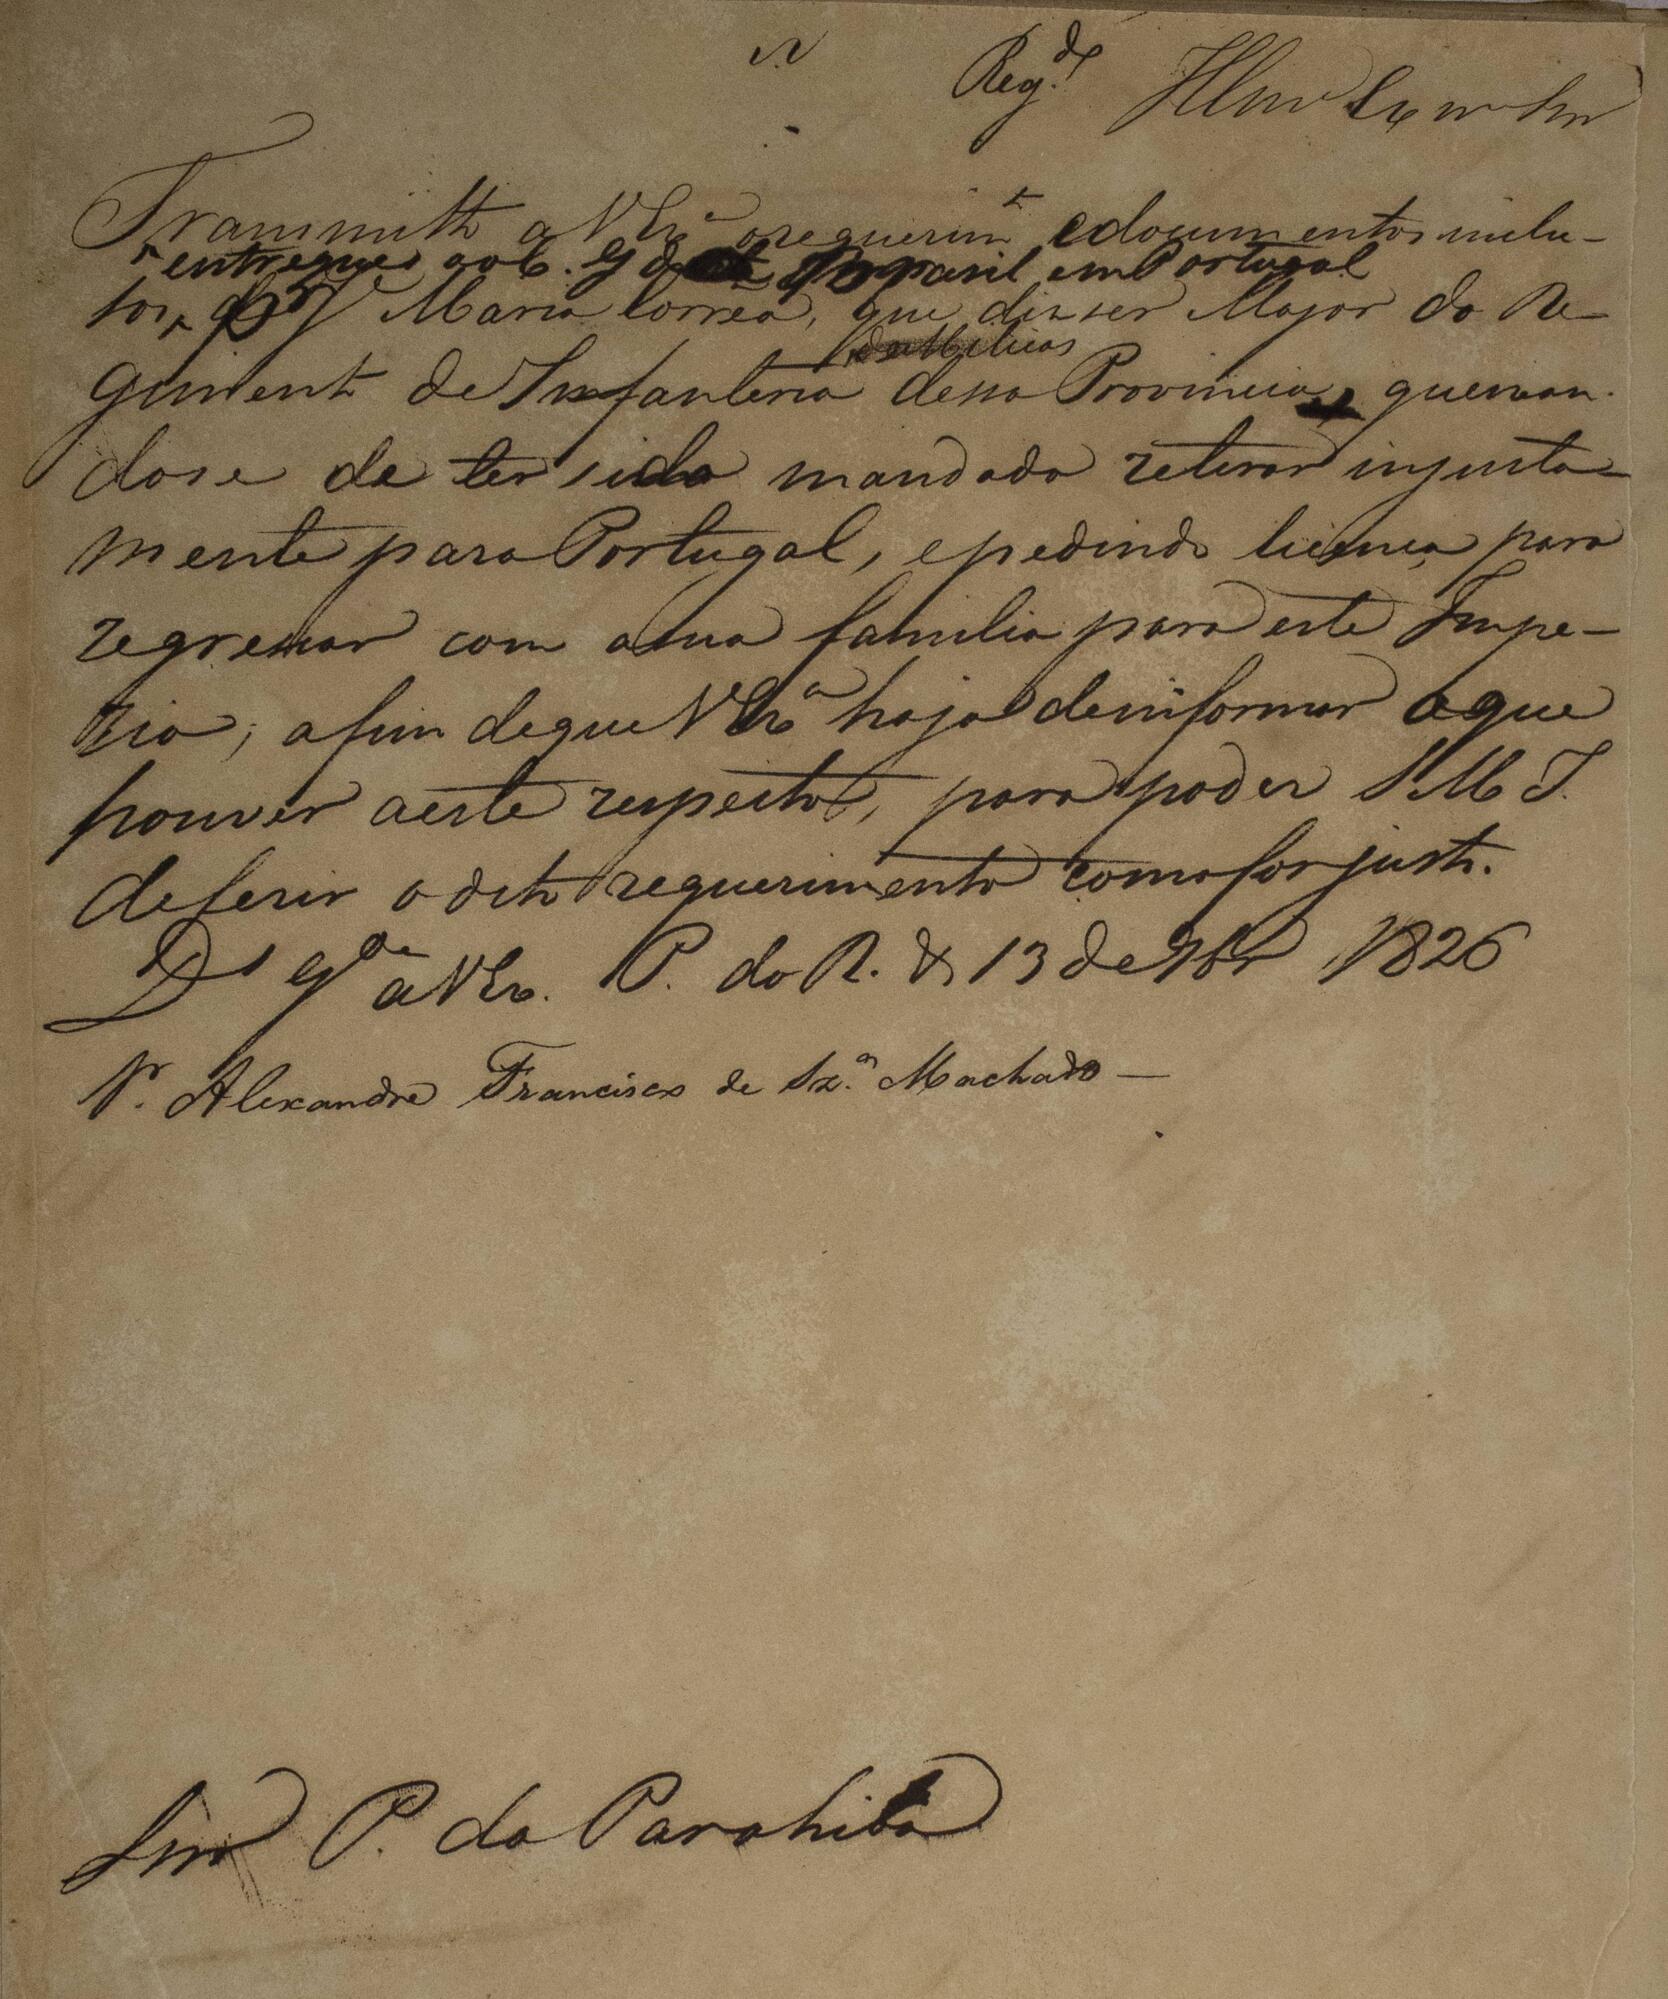 N
Reg.do Illmo Exmo Snr
Transmitto a V Exa o requerimto e documentos inclu-
entregues ao C. G do Brasil em Portugal
sos, de Maria Corrêa, que diz ser Major do Re-
de Milicias
gimento de Infanteria dessa Provincia, queixan-
dose de ter sido mandado retirar injusta-
mente para Portugal, e pedindo licença para
regressar com a sua familia para este Impe-
rio; a fim de que V Exa haja de informar o que
houver a este respeito, para poder S. M. I.
deferir o dito requerimento como for justo.
Ds gde a V Ex. P. do R. de Jan 13 de 9br 1826
Sr. Alexandre Francisco de Sz.a Machado —
Snr P. da Parahiba